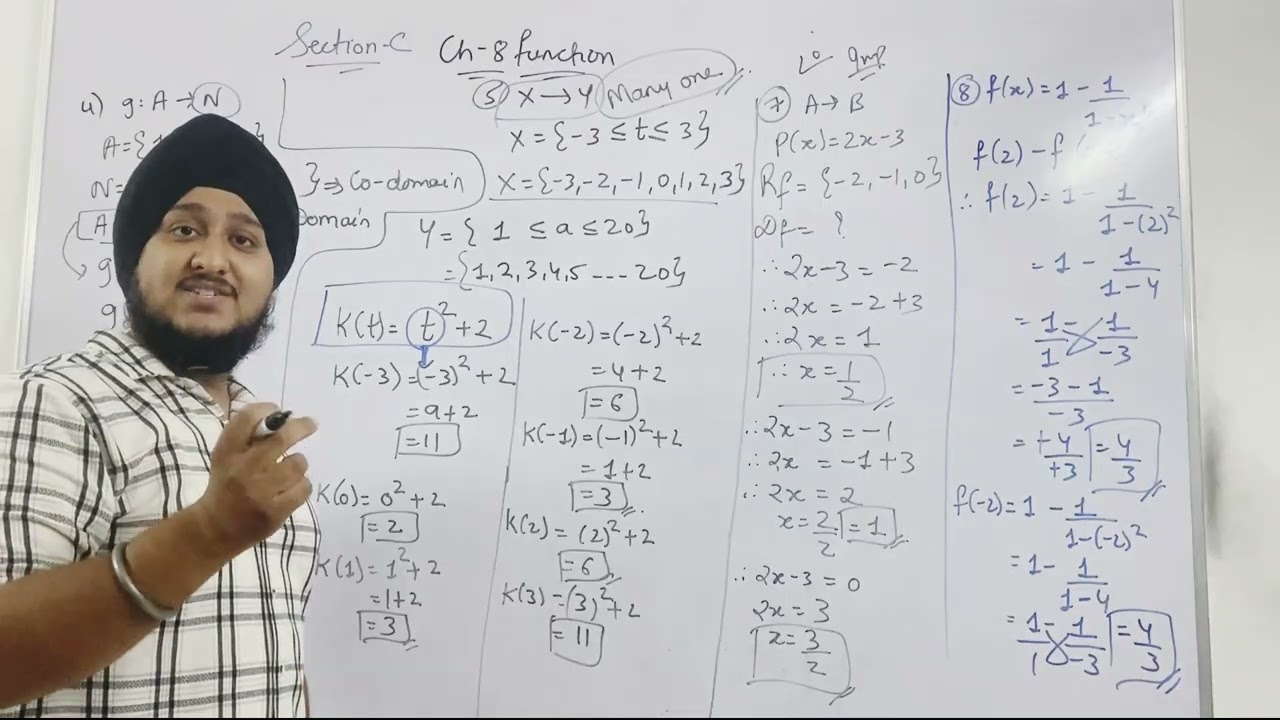 Section-C Ch-8 function
4) g: A → N
A = {1
N =
} ⇒ Co-domain
A
Domain
g
g
5) X → Y Many one
X = {-3 ≤ t ≤ 3}
X = {-3, -2, -1, 0, 1, 2, 3}
Y = { 1 ≤ a ≤ 20}
= {1, 2, 3, 4, 5 ---- 20}
K(t) = t² + 2
K(-3) = (-3)² + 2
= 9 + 2
= 11
K(0) = 0² + 2
= 2
K(1) = 1² + 2
= 1 + 2
= 3
K(-2) = (-2)² + 2
= 4 + 2
= 6
K(-1) = (-1)² + 2
= 1 + 2
= 3
K(2) = (2)² + 2
= 6
K(3) = (3)² + 2
= 11
Imp
7 A → B
P(x) = 2x - 3
Rf = {-2, -1, 0}
Df = ?
∴ 2x - 3 = -2
∴ 2x = -2 + 3
∴ 2x = 1
∴ x = 1/2
∴ 2x - 3 = -1
∴ 2x = -1 + 3
∴ 2x = 2
x = 2/2 = 1
∴ 2x - 3 = 0
2x = 3
x = 3/2
8 f(x) = 1 - 1/1-
f(2) - f
∴ f(2) = 1 - 1/1-(2)²
= 1 - 1/1-4
= 1/1 - 1/-3
= -3 - 1/-3
= -4/+3 = 4/3
f(-2) = 1 - 1/1-(-2)²
= 1 - 1/1-4
= 1/1 - 1/-3 = 4/3